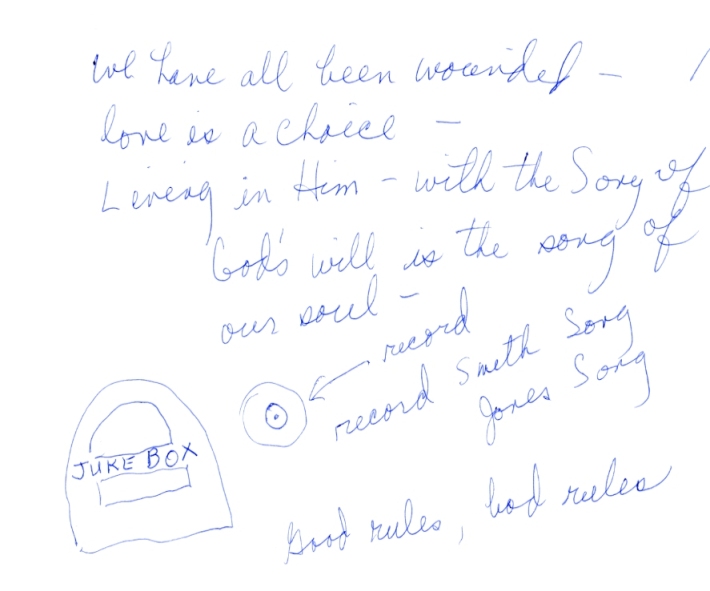 we have all been wounded – /
love is a choice –
Living in Him – with the Song of
God's will is the song of
our soul –
record
record Smith Song
Jones Song
JUKE BOX
Good rules, bad rules